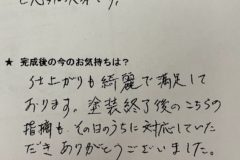 ★ 完成後の今のお気持ちは?
仕上がりも綺麗で満足して
おります。塗装終了後のこちらの
指摘も、その日のうちに対応していた
だきありがとうございました。